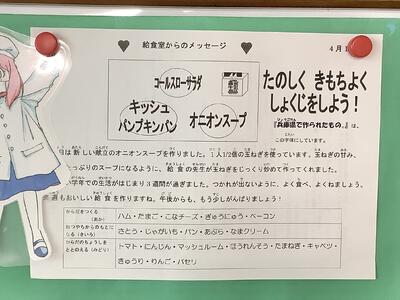 ♥ 給食室からのメッセージ ♥
4月1
コールスローサラダ
キッシュ
パンプキンパン
オニオンスープ
たのしく きもちよく
しょくじをしよう！
『兵庫県で作られたもの』は
この字体にしています。
は新しい献立のオニオンスープを作りました。1人1/2個の玉ねぎを使っています。玉ねぎの甘み、
たっぷりのスープになるように、給食の先生が玉ねぎをじっくり炒めて作ってくれました。
い学年での生活がはじまり3週間が過ぎました。つかれが出ないように、よく食べ、よくねましょう。
週もおいしい給食を作りますね。午後からも、もう少しがんばりましょう！
からだをつくる
（あか）
ハム・たまご・こなチーズ・ぎゅうにゅう・ベーコン
ねつやちからのもとに
なる（きいろ）
さとう・じゃがいち・パン・あぶら・なまクリーム
からだのちょうしを
ととのえる（みどり）
トマト・にんじん・マッシュルーム・ほうれんそう・たまねぎ・キャベツ・
きゅうり・りんご・パセリ